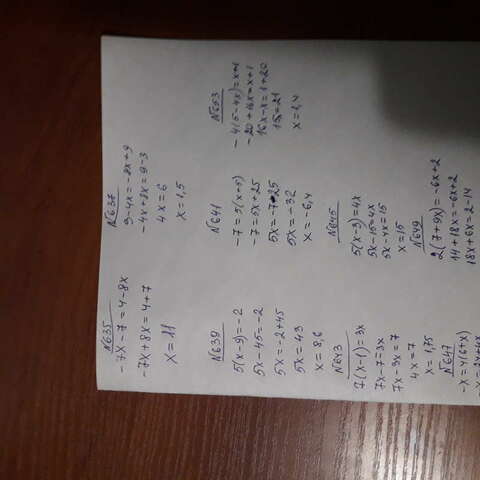 №635
-7x-7=4-8x
-7x+8x=4+7
x=11
№637
3-4x=-8x+9
-4x+8x=9-3
4x=6
x=1,5
№639
5(x-9)=-2
5x-45=-2
5x=-2+45
5x=43
x=8,6
№641
-7=5(x+5)
-7=5x+25
5x=-7-25
5x=-32
x=-6,4
№653
-4(5-4x)=x+1
-20+16x=x+1
16x-x=1+20
15=21
x=1,4
№643
7(x-1)=3x
7x-7=3x
7x-3x=7
4x=7
x=1,75
№645
5(x-3)=4x
5x-15=4x
5x-4x=15
x=15
№647
-x=4(6+x)
-x=24+4x
№649
2(7+9x)=-6x+2
14+18x=-6x+2
18x+6x=2-14